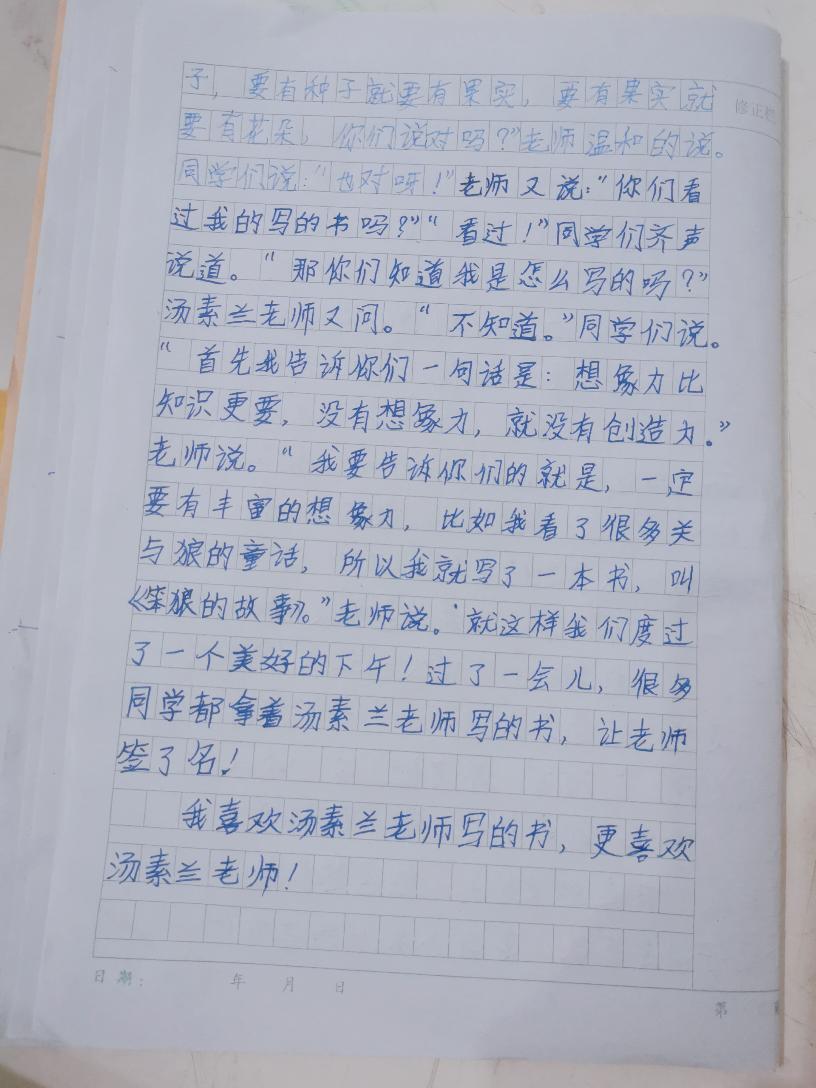 子，要有种子就要有果实，要有果实就
修正栏
要有花朵，你们说对吗？”老师温和的说。
同学们说：“也对呀！”老师又说：“你们看
过我的写的书吗？”“看过！”同学们齐声
说道。“那你们知道我是怎么写的吗？”
汤素兰老师又问。“不知道。”同学们说。
“首先我告诉你们一句话是：想象力比
知识更要，没有想象力，就没有创造力。”
老师说。“我要告诉你们的就是，一定
要有丰富的想象力，比如我看了很多关
与狼的童话，所以我就写了一本书，叫
《笨狼的故事》。”老师说。就这样我们度过
了一个美好的下午！过了一会儿，很多
同学都拿着汤素兰老师写的书，让老师
签了名！
我喜欢汤素兰老师写的书，更喜欢
汤素兰老师！
日期： 年 月 日
第